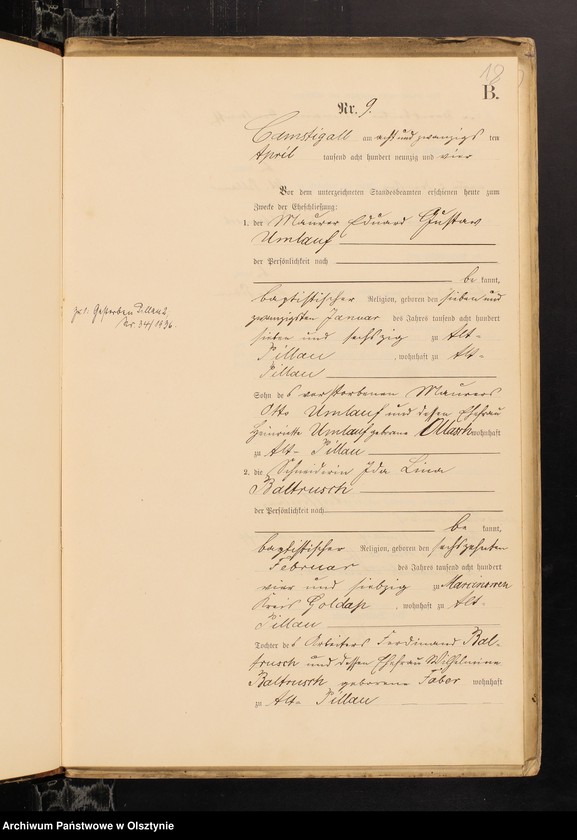 18
B.
Nr. 9.
Camstigall am acht und zwanzigs ten
April tausend acht hundert neunzig und vier
Vor dem unterzeichneten Standesbeamten erschienen heute zum
Zwecke der Eheschließung:
1. der Maurer Eduard Gustav
Umlauf
der Persönlichkeit nach
be kannt,
baptistischer Religion, geboren den sieben und
zwanzigsten Januar des Jahres tausend acht hundert
sieben und sechszig zu Alt-
Pillau, wohnhaft zu Alt-
Pillau
Sohn des verstorbenen Maurers
Otto Umlauf und dessen Ehefrau
Heinriette Umlauf geborene wohnhaft
zu Alt- Pillau
2. die Schneiderin Ida Lina
Baltrusch
der Persönlichkeit nach
be kannt,
baptistischer Religion, geboren den sechszehnten
Februar des Jahres tausend acht hundert
vier und siebzig zu
Kreis Goldap, wohnhaft zu Alt-
Pillau
Tochter des Arbeiters Ferdinand Bal-
trusch und dessen Ehefrau Wilhelmine
Baltrusch geborene Faber wohnhaft
zu Alt- Pillau
zu 1. Gestorben Pillau 2,
Nr. 34/1936.
Archiwum Państwowe w Olsztynie